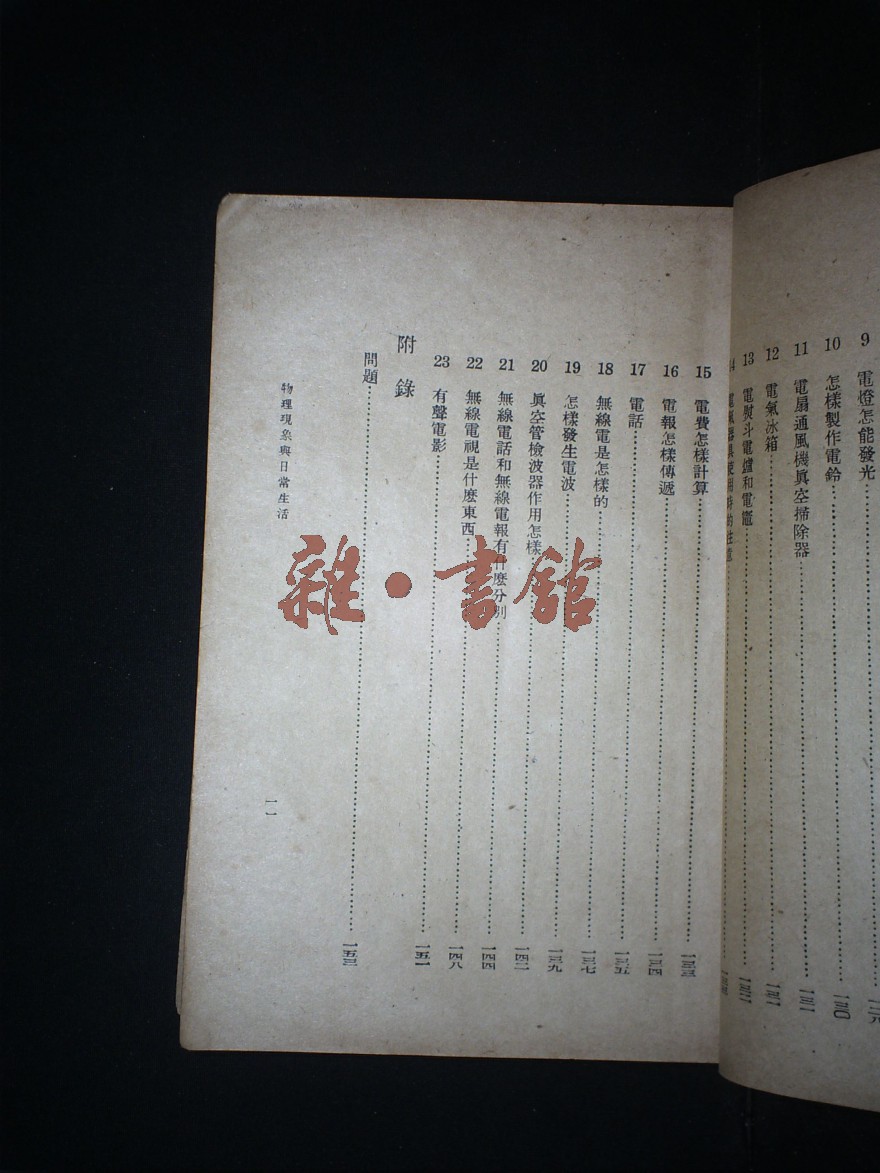 9 電燈怎能發光……一二九
10 怎樣製作電鈴……一三〇
11 電扇通風機眞空掃除器……一三一
12 電氣冰箱……一三二
13 電熨斗電爐和電竈
14 電氣器具使用時的注意
15 電費怎樣計算……一三三
16 電報怎樣傳遞……一三四
17 電話……一三五
18 無線電是怎樣的……一三七
19 怎樣發生電波……一三九
20 眞空管檢波器作用怎樣……一四二
21 無線電話和無線電報有什麽分別……一四四
22 無線電視是什麽東西……一四八
23 有聲電影……一五一
附錄
問題……一五三
物理現象與日常生活
一一
雜·書館